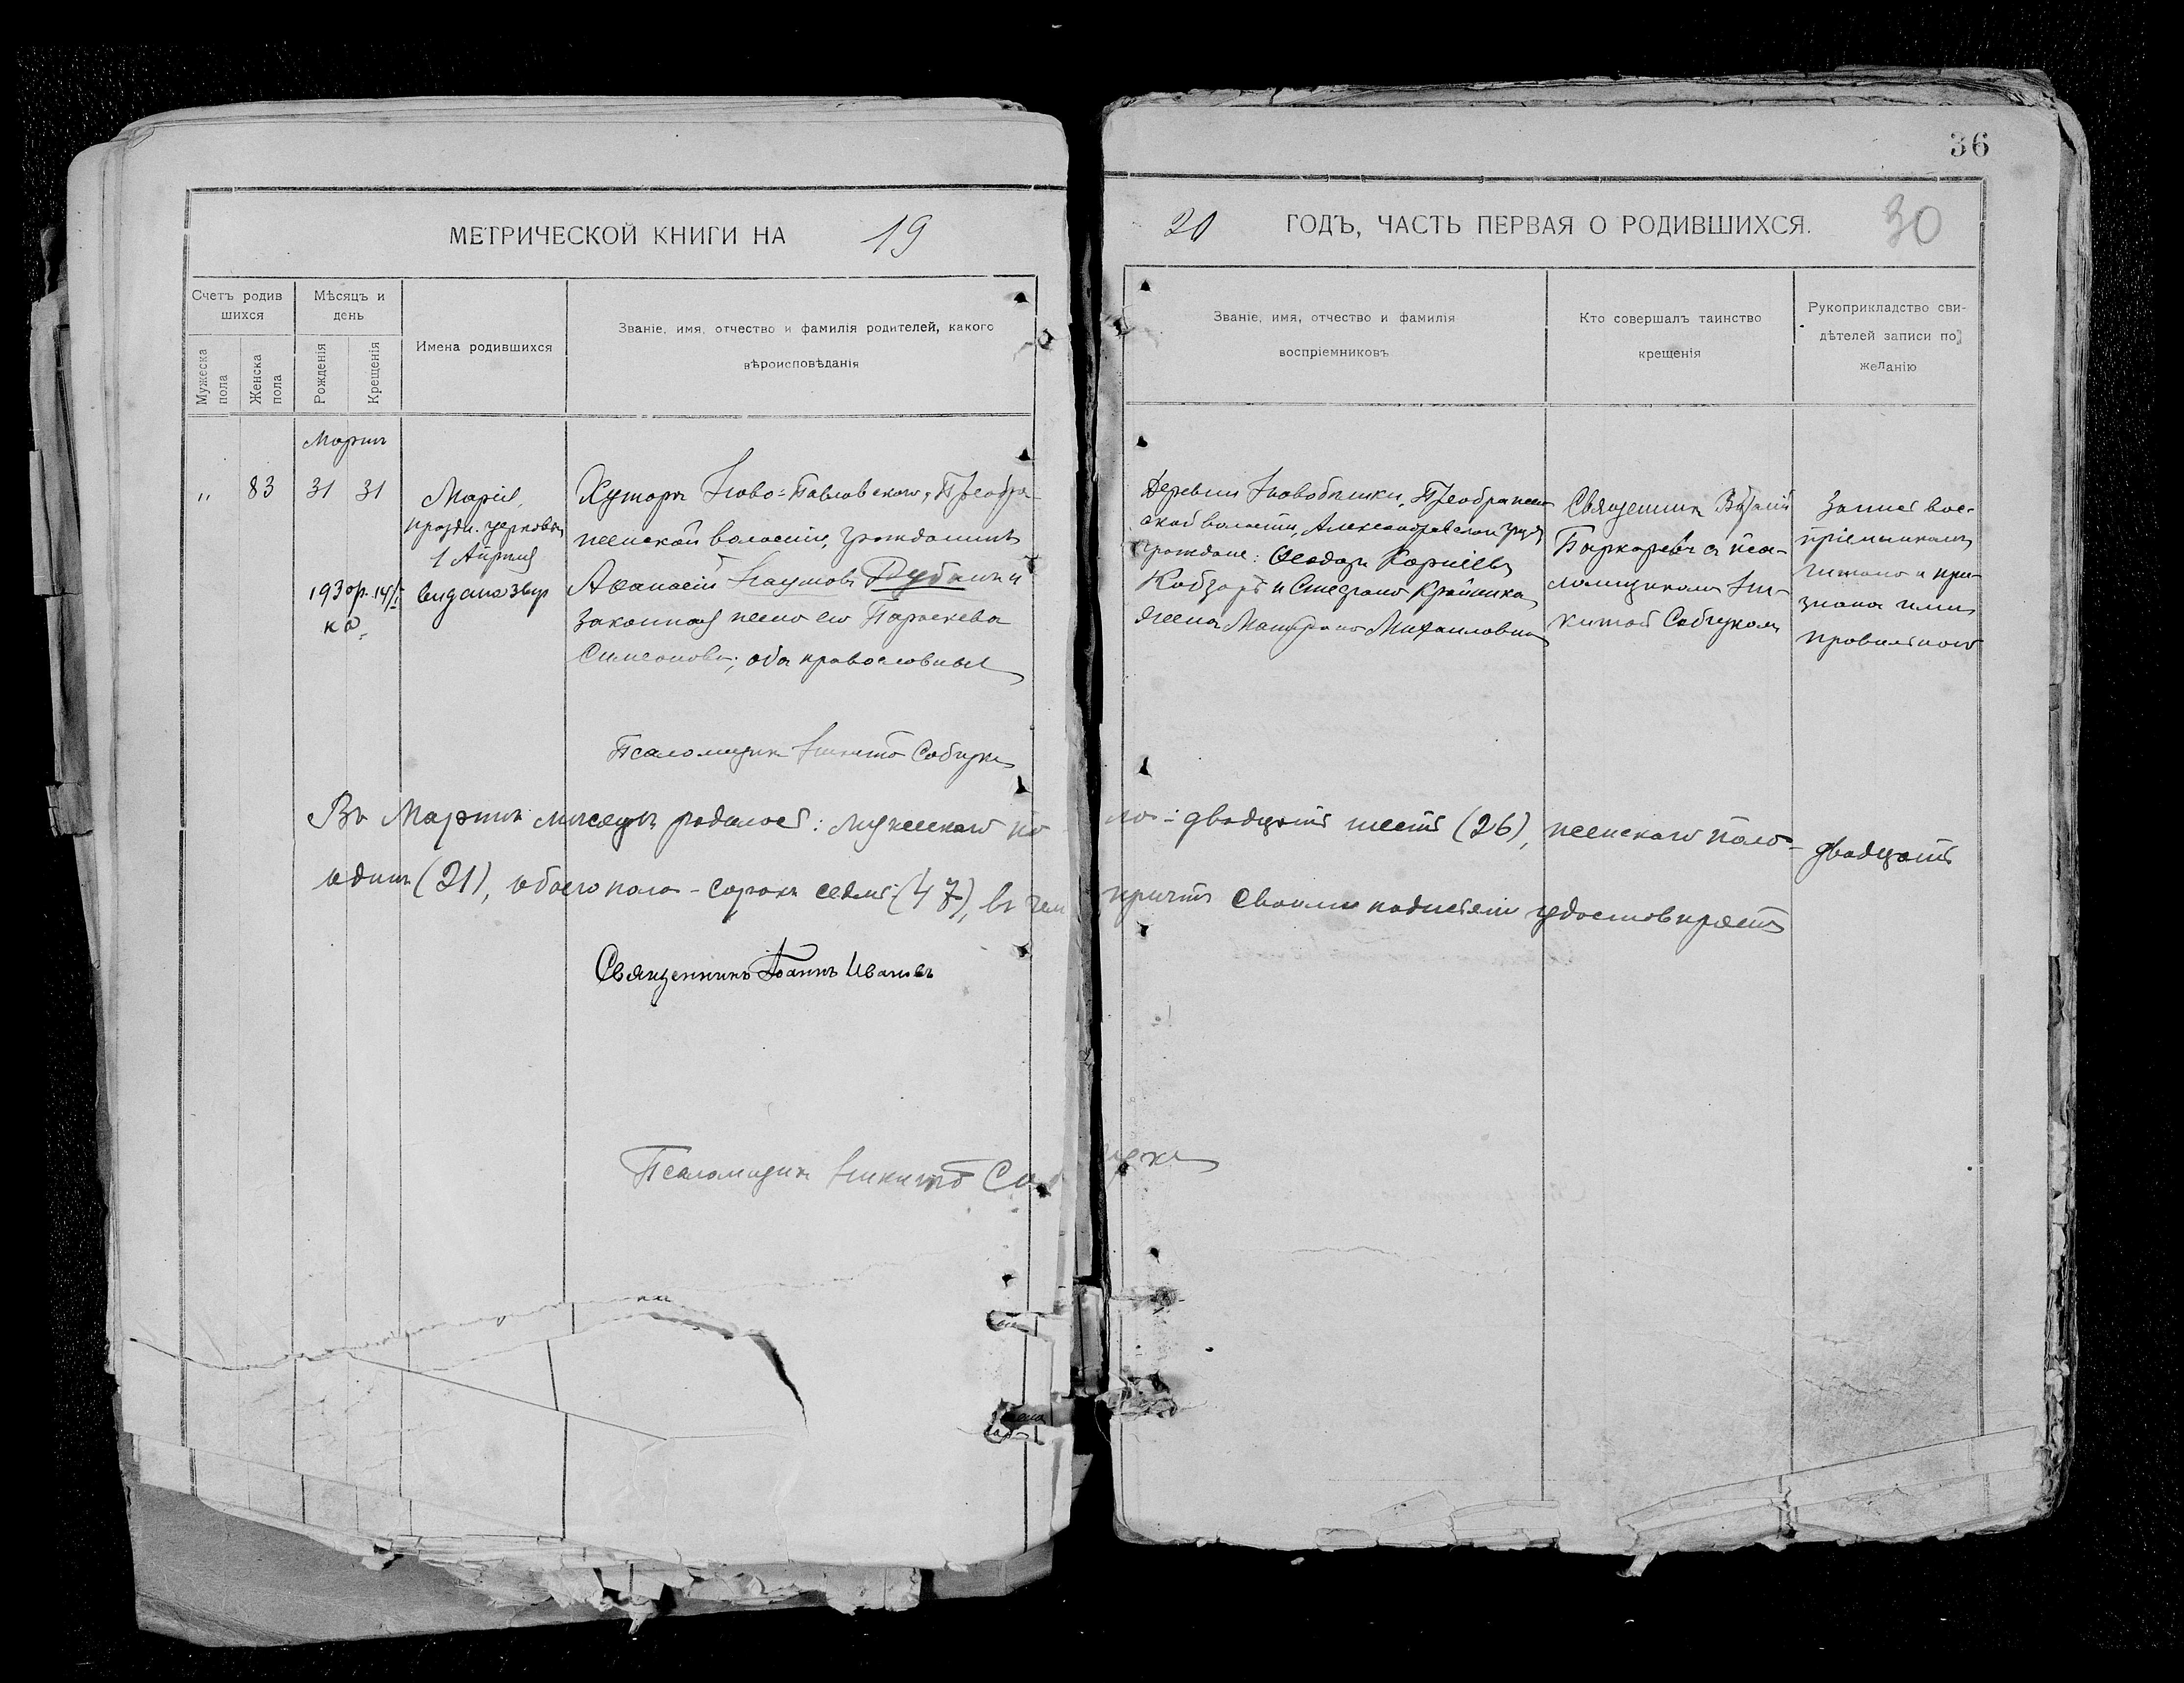 36
МЕТРИЧЕСКОЙ КНИГИ НА 19
20 ГОДЪ, ЧАСТЬ ПЕРВАЯ О РОДИВШИХСЯ. 30
Счетъ родив
шихся
Мужеска
пола
Женска
пола
Мѣсяцъ и
день
Рожденія
Крещенія
Имена родившихся
Званіе, имя, отчество и фамилія родителей, какого
вѣроисповѣданія
Званіе, имя, отчество и фамилія
воспріемниковъ
Кто совершалъ таинство
крещенія
Рукоприкладство сви-
дѣтелей записи по
желанію
Мартъ
„ 83 31 31
Марія,
празд. церковью
1 Апреля
193 г. 14/I видана
Хутора Ново=Павловскаго, Преобра-
женской волости, гражданинъ
Аѳанасій Наумовъ
законная жена его Параскева
Симеонова; оба православные
Псаломщикъ Никита Собчукъ
Деревни Преображен-
ской волости, Александровскаго
граждане: Ѳеодоръ Корніевъ
Кобзарь и Стефана
жена Матрона Михаиловна
Священникъ
съ пса-
ломщикомъ Ни-
китой Собчукомъ
Запись вос-
пріемникамъ
читана и при-
знана ими
правильною
Въ Мартѣ мѣсяцѣ родилось: мужескаго по-
ла - двадцать шесть (26), женскаго пола - двадцать
одинъ (21), обоего пола - сорокъ семь (47), въ чемъ
причтъ своими подписями удостовѣряетъ
Священникъ Іоаннъ Ивановъ
Псаломщикъ Никита Собчукъ